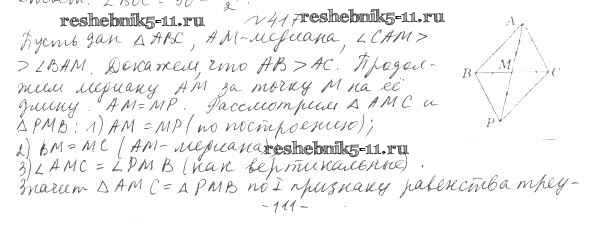 reshebnik5-11.ru
№417 reshebnik5-11.ru
Пусть дан △ABC, AM-медиана, ∠CAM>
>∠BAM. Докажем, что AB>AC. Продол-
жим медиану AM за точку M на её
длину. AM=MP. Рассмотрим △AMC и
△PMB: 1) AM=MP (по построению);
2) BM=MC (AM-медиана) reshebnik5-11.ru
3) ∠AMC=∠PMB (как вертикальные).
Значит △AMC=△PMB по I признаку равенства треу-
-111-
A
B M C
P